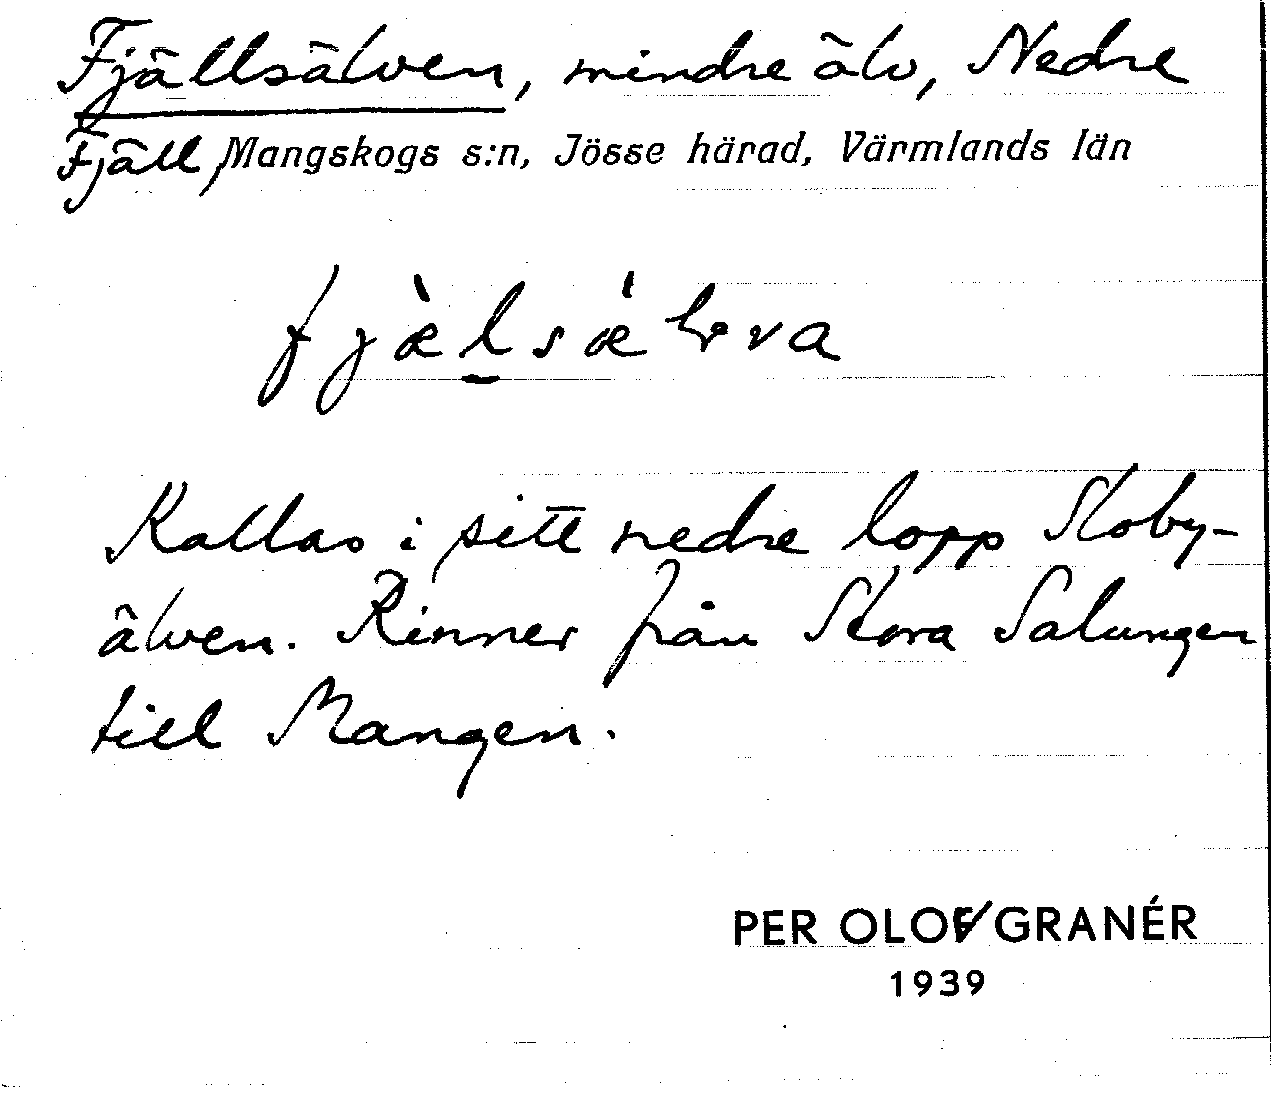 Fjällsälven, mindre älv, Nedre
Fjäll, Mangskogs s:n, Jösse härad, Värmlands län
Kallas i sitt nedre lopp Sloby-
älven. Rinner från Stora Salungen
till Mangen.
PER OLOF GRANÉR
1939